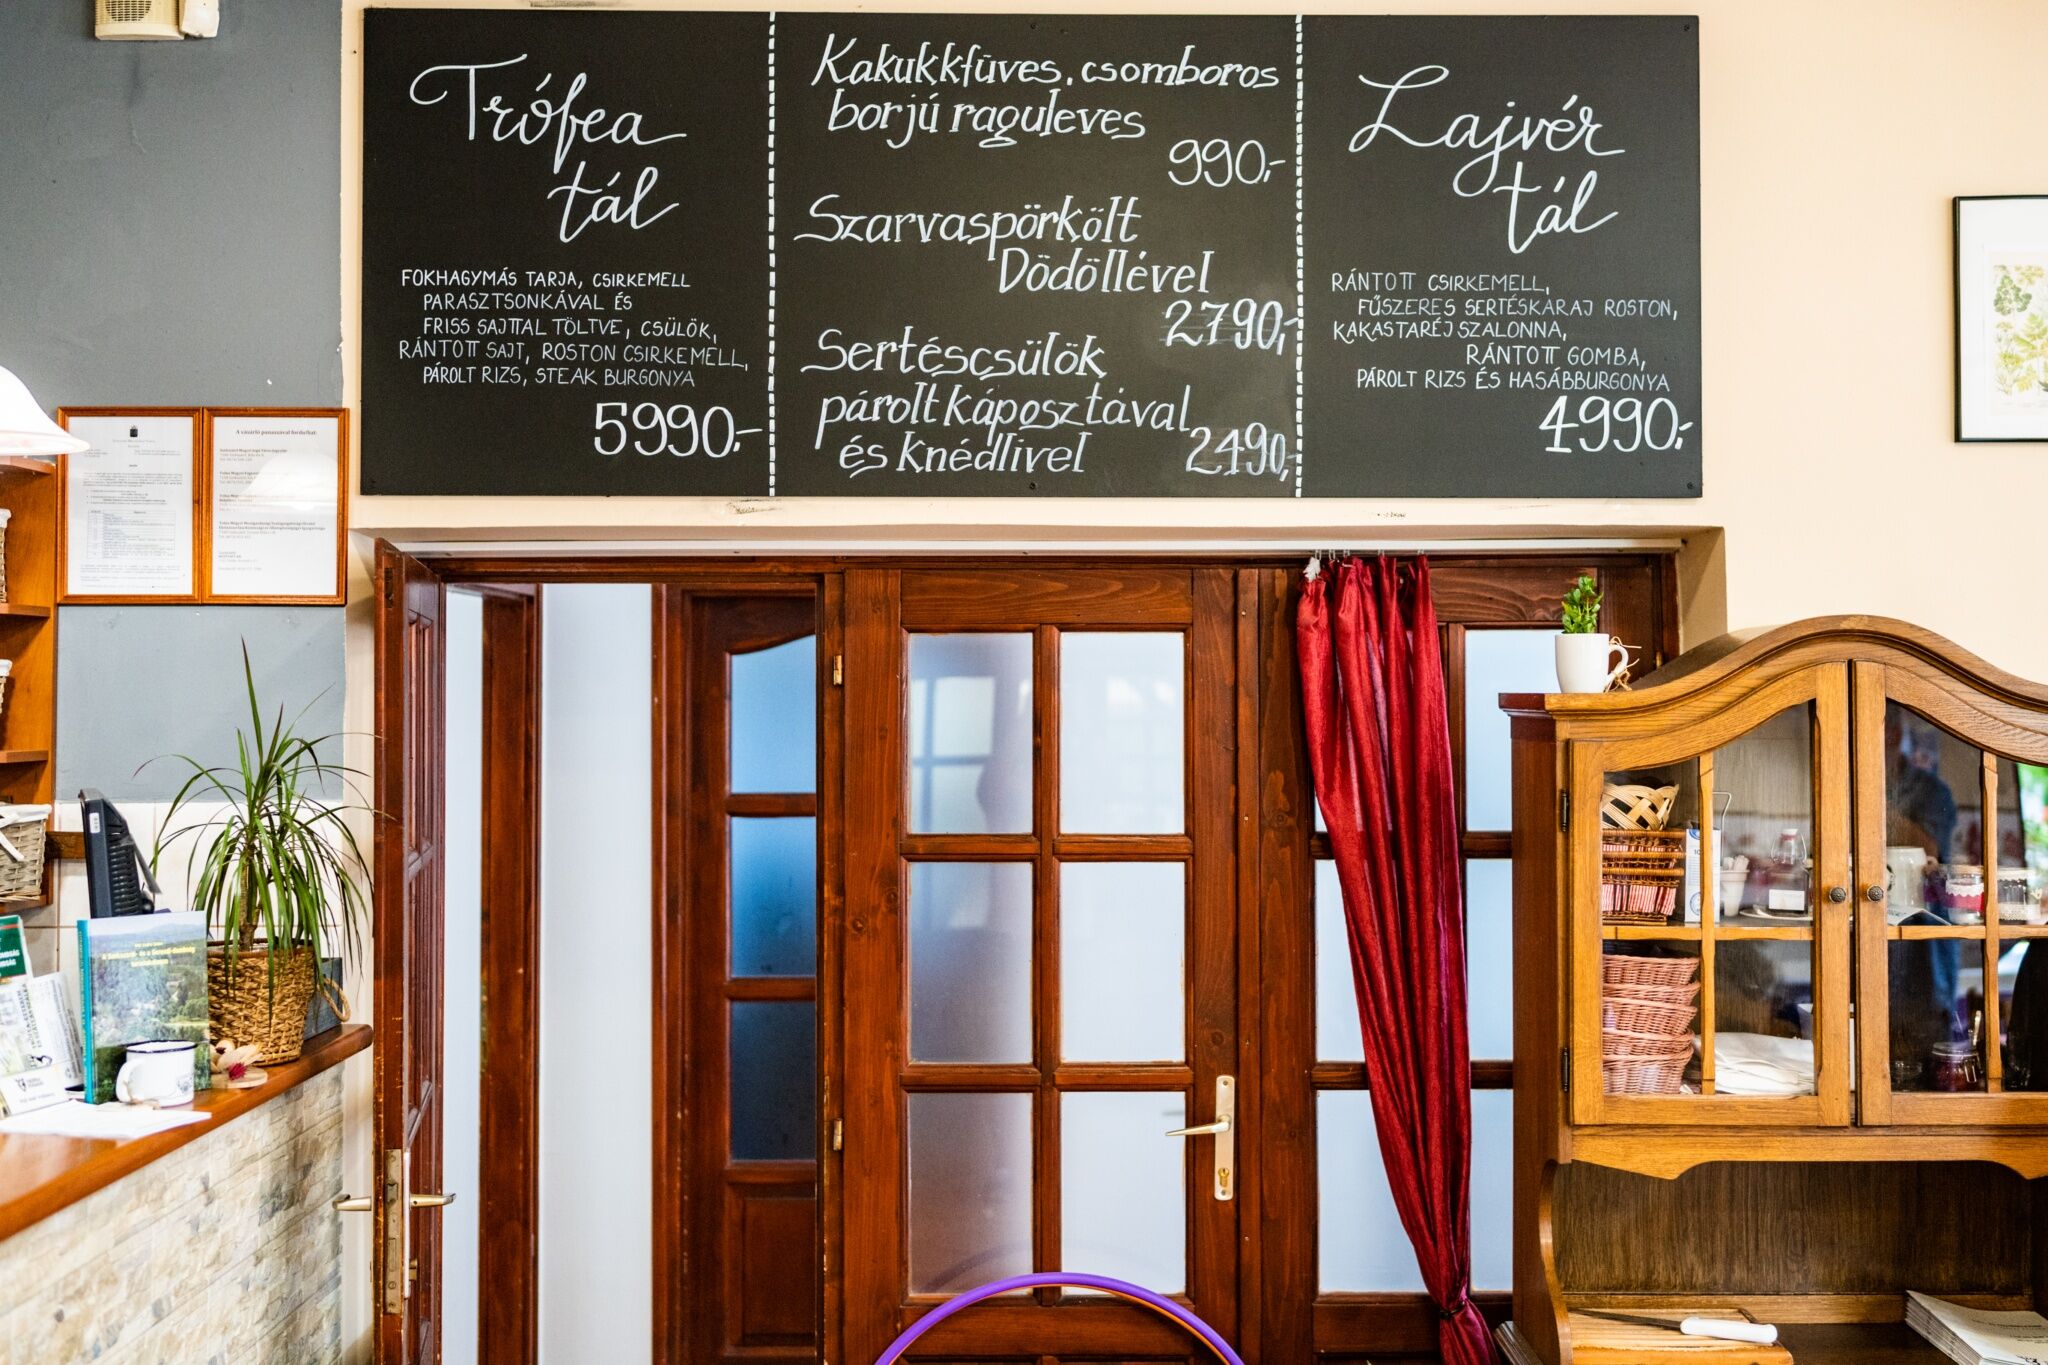 Trófea
tál
FOKHAGYMÁS TARJA, CSIRKEMELL
PARASZTSONKÁVAL ÉS
FRISS SAJTTAL TÖLTVE, CSÜLÖK,
RÁNTOTT SAJT, ROSTON CSIRKEMELL,
PÁROLT RIZS, STEAK BURGONYA
5990,-
Kakukkfüves, csomboros
borjú raguleves
990,-
Szarvaspörkölt
Dödöllével
2790,-
Sertéscsülök
párolt káposztával
és knédlivel
2490,-
Lajvér
tál
RÁNTOTT CSIRKEMELL,
FŰSZERES SERTÉSKARAJ ROSTON,
KAKASTARÉJ SZALONNA,
RÁNTOTT GOMBA,
PÁROLT RIZS ÉS HASÁBBURGONYA
4990,-
A vásárló panaszával fordulhat: